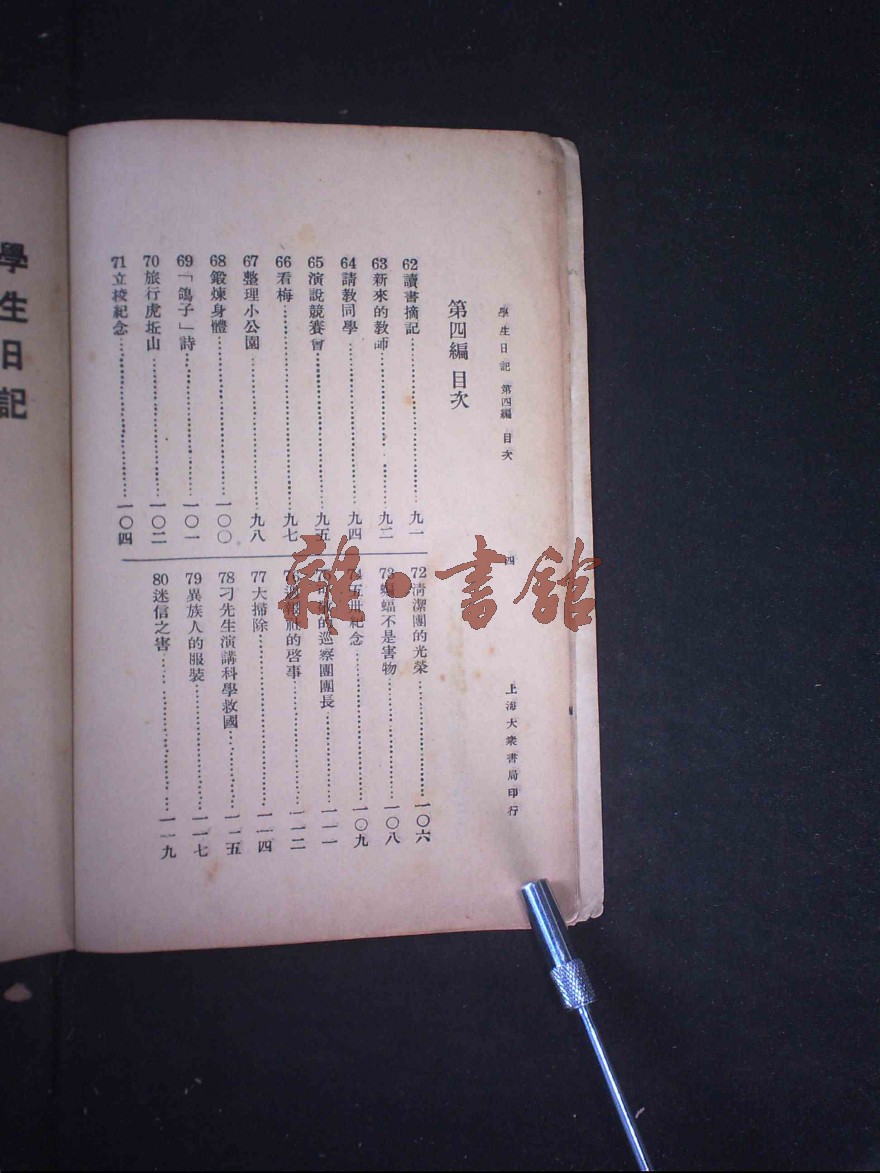 學生日記 第四編 目次
四
上海大衆書局印行
第四編 目次
62 讀書摘記 九一
63 新來的教師 九二
64 請教同學 九四
65 演說競賽會 九五
66 看梅 九七
67 整理小公園 九八
68 鍛煉身體 一〇〇
69 「鴿子」詩 一〇一
70 旅行虎坵山 一〇二
71 立校紀念 一〇四
72 清潔團的光榮 一〇六
73 蝙蝠不是害物 一〇八
74 五卅紀念 一〇九
75 的巡察團團長 一一一
76 社的啓事 一一二
77 大掃除 一一四
78 刁先生演講科學救國 一一五
79 異族人的服裝 一一七
80 迷信之害 一一九
學生日記
雜·書館